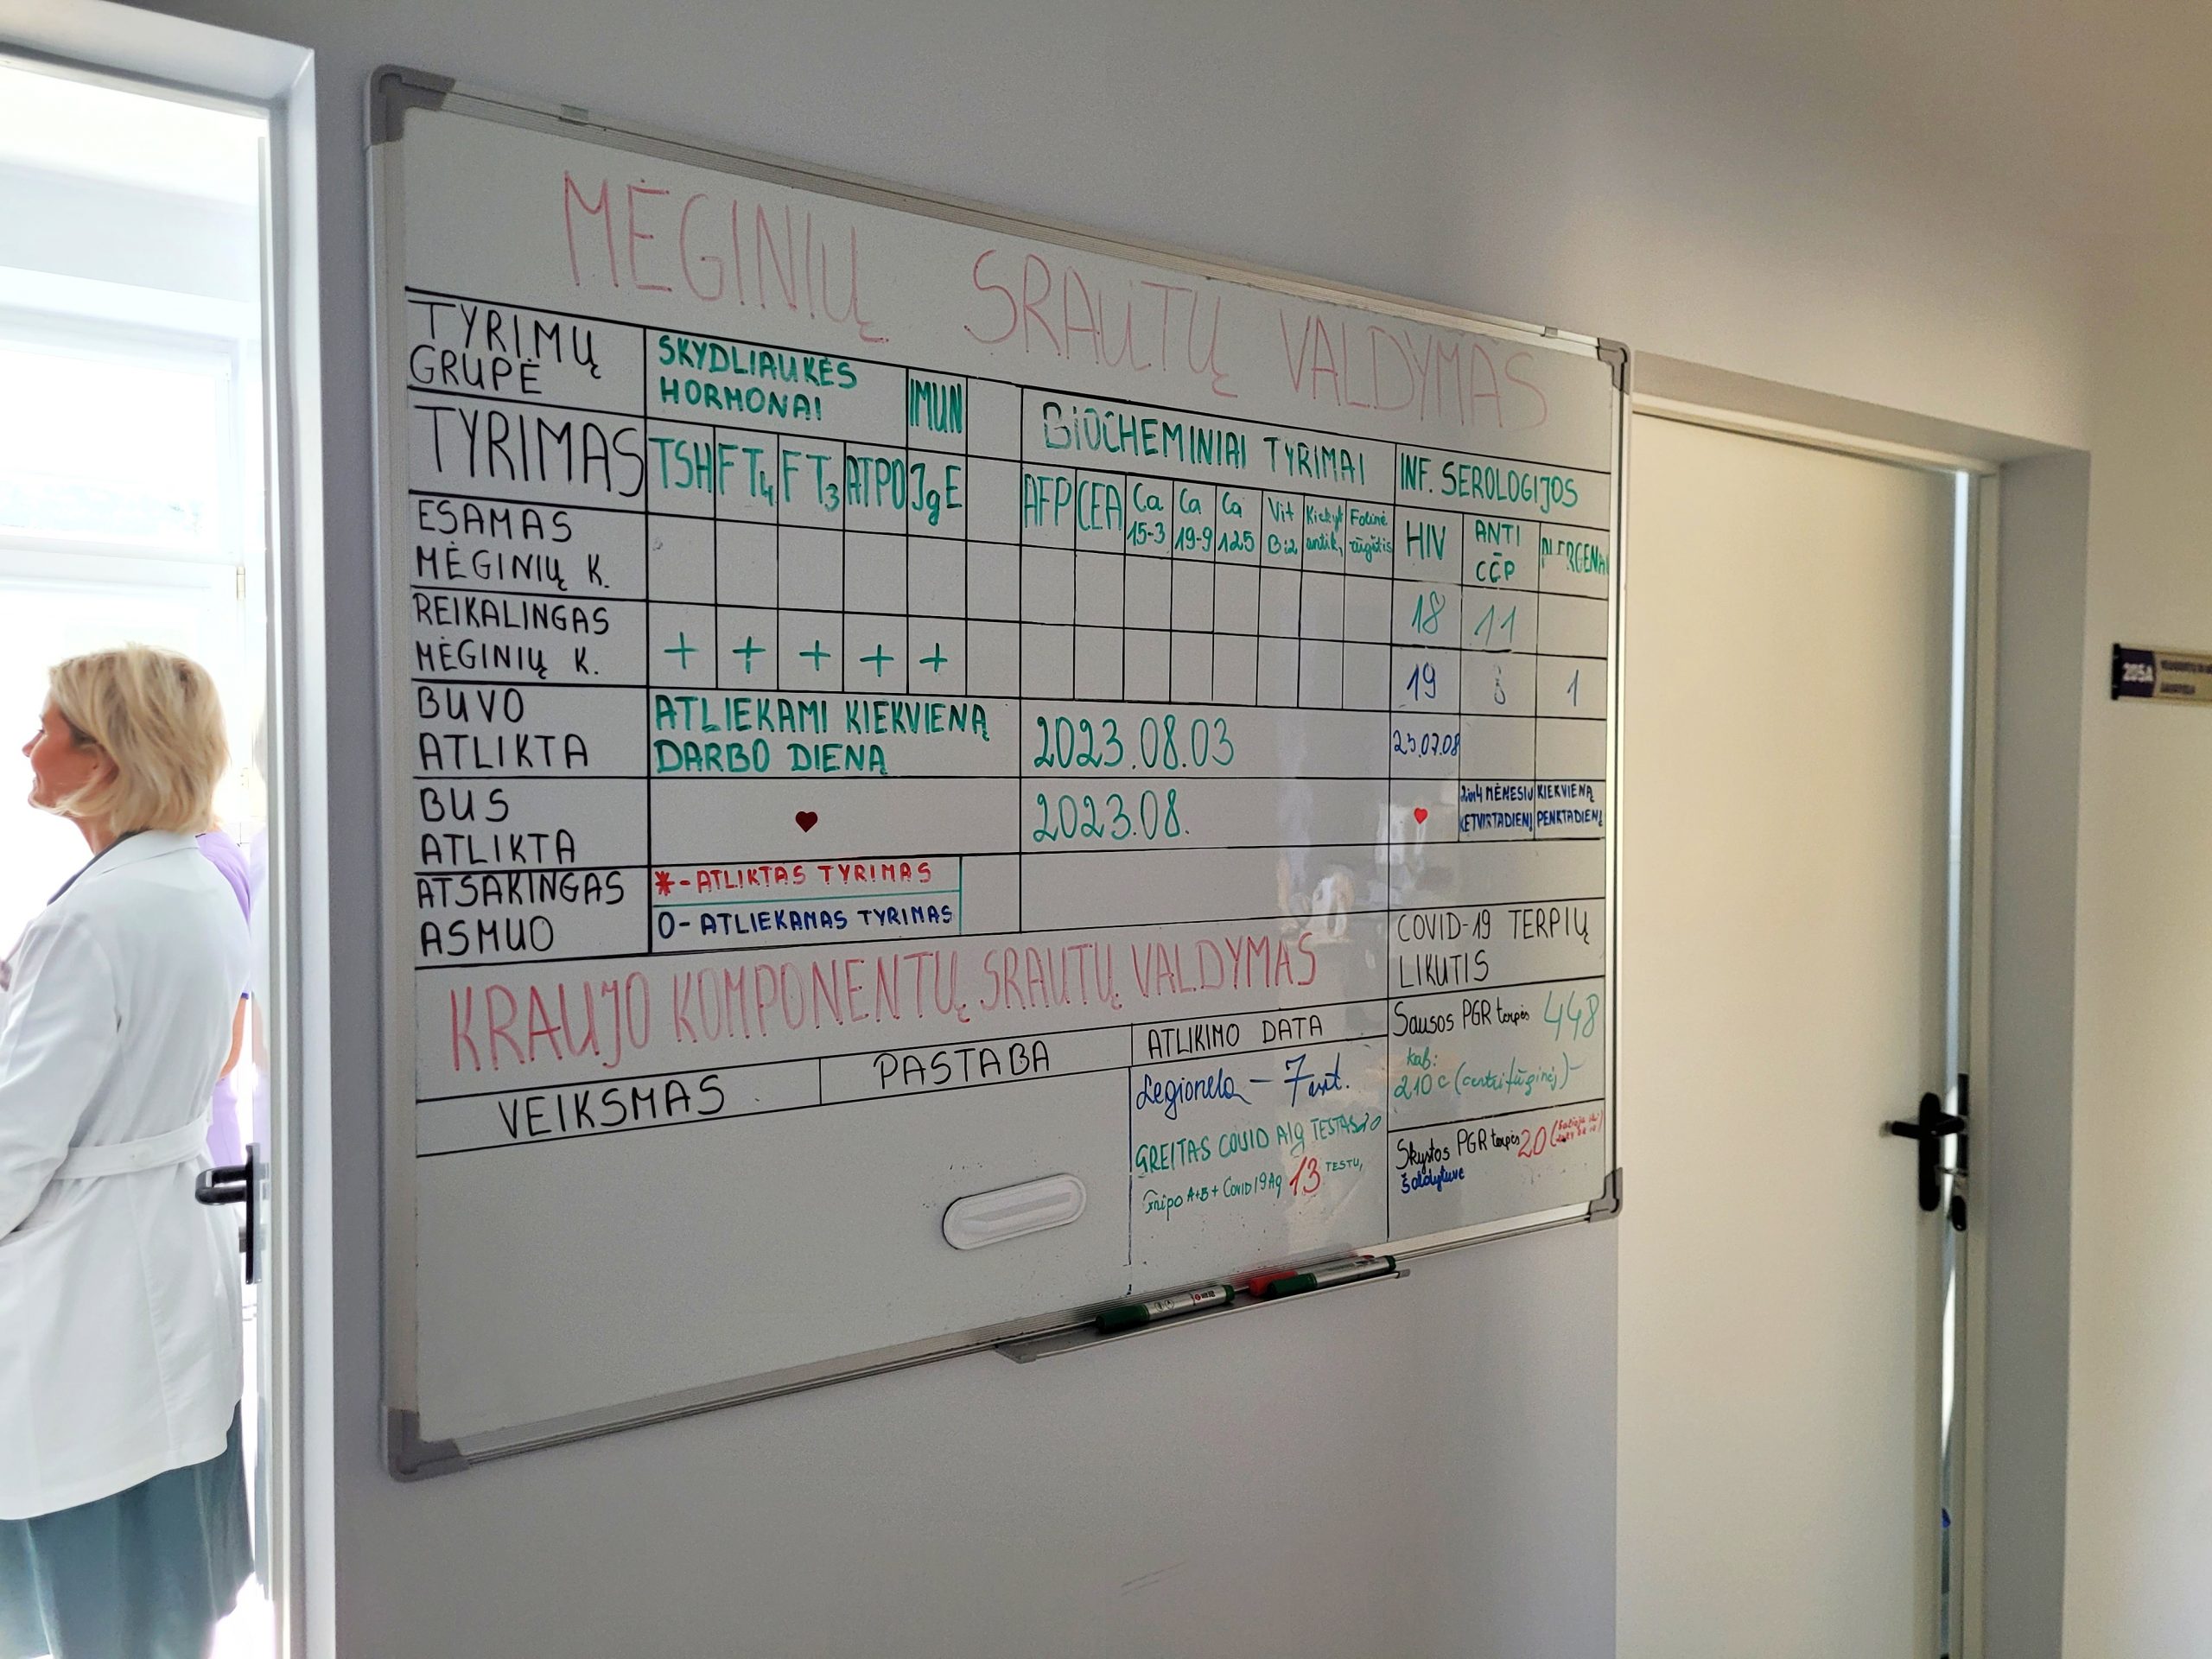 MĖGINIŲ SRAUTŲ VALDYMAS
TYRIMŲ
GRUPĖ
SKYDLIAUKĖS
HORMONAI
IMUN
BIOCHEMINIAI TYRIMAI
INF. SEROLOGIJOS
TYRIMAS
TSH
FT4
FT3
ATPO
IgE
AFP
CEA
Ca
15-3
Ca
19-9
Ca
125
Vit
B12
antik.
Folinė
rūgštis
HIV
ANTI
CCP
ESAMAS
MĖGINIŲ K.
18
11
REIKALINGAS
MĖGINIŲ K.
+ + + + +
19
1
BUVO
ATLIKTA
ATLIEKAMI KIEKVIENĄ
DARBO DIENĄ
2023.08.03
BUS
ATLIKTA
2023.08.
MĖNESIO
KETVIRTADIENĮ
KIEKVIENĄ
PENKTADIENĮ
ATSAKINGAS
ASMUO
*-ATLIKTAS TYRIMAS
O-ATLIEKAMAS TYRIMAS
KRAUJO KOMPONENTŲ SRAUTŲ VALDYMAS
VEIKSMAS
PASTABA
ATLIKIMO DATA
Legionela - 7 vnt.
GREITAS COVID Ag TESTAS 20
Gripo A+B + Covid19Ag 13 TESTŲ
COVID-19 TERPIŲ
LIKUTIS
Sausos PGR terpės 448
kab:
210 c (centrifūginėj)-
Skystos PGR terpės 20
šaldytuve
205A